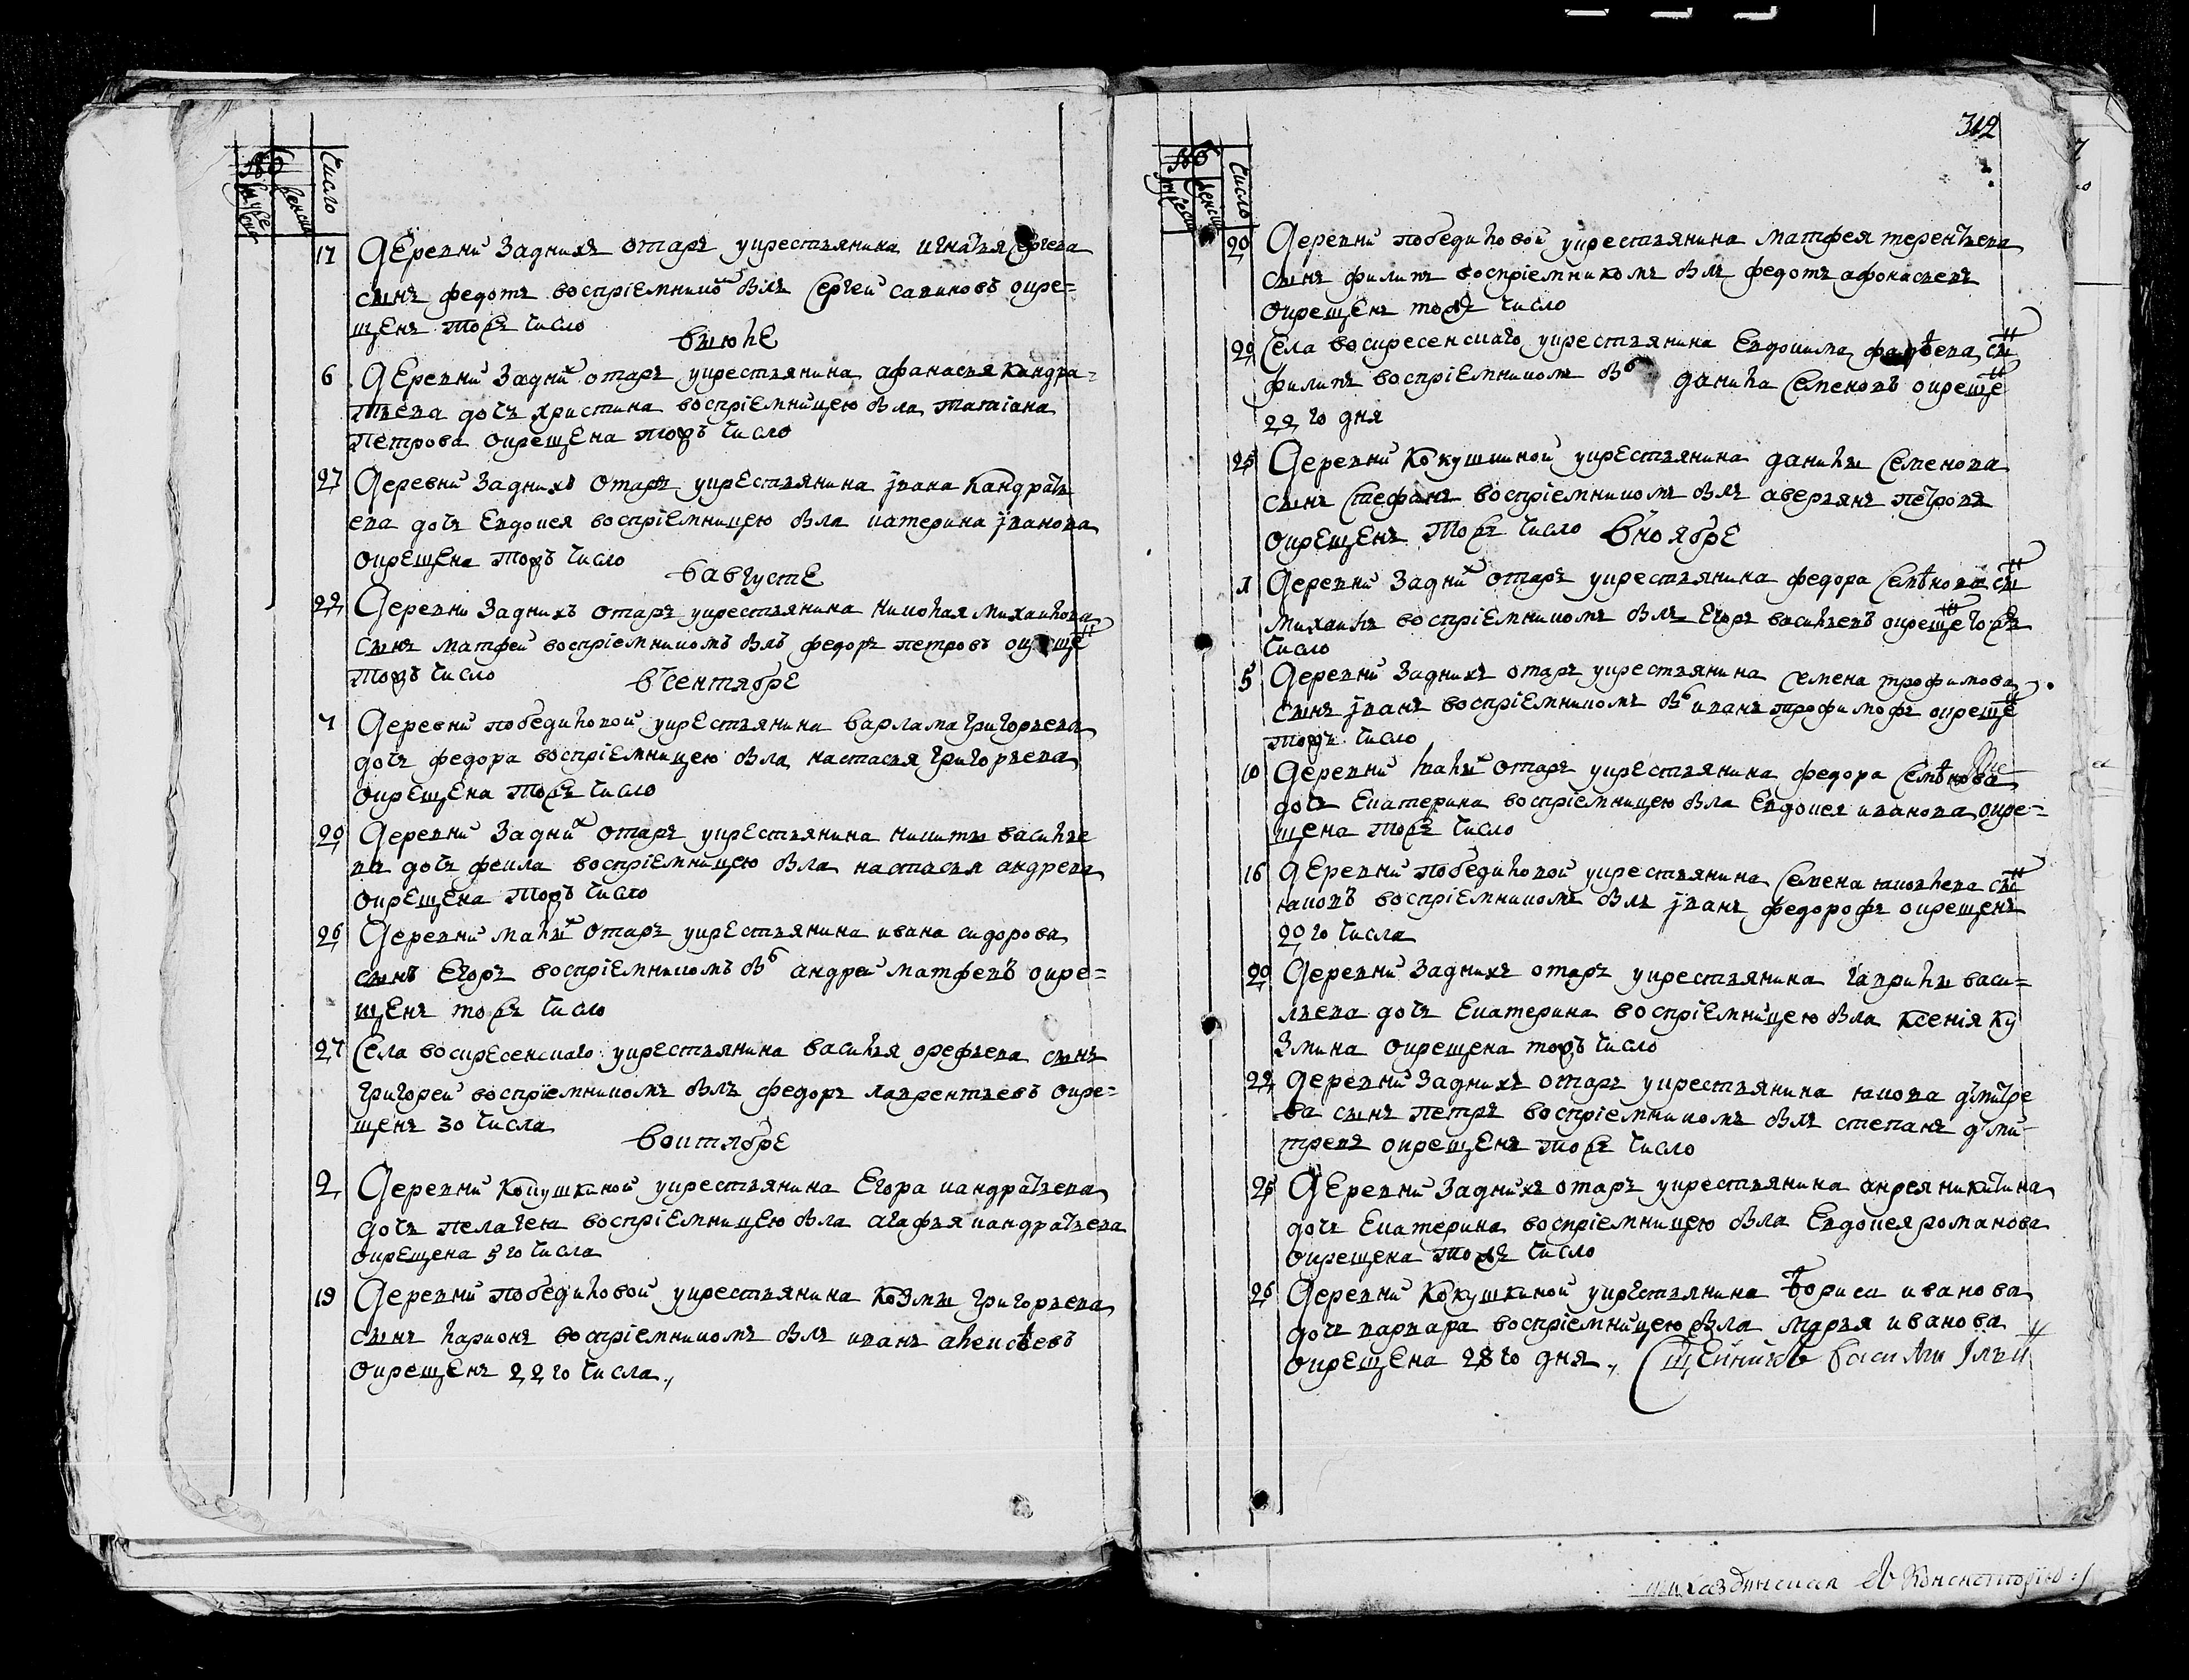 Число
17 Деревни Заднихъ отаръ укрестьянина игнатья Сергеева
сынъ федотъ воспріемникомъ былъ Сергей савиновъ окре=
щенъ тожъ число
вiюлѣ
6 Деревни Заднихъ отаръ укрестьянина афанасья кандра=
тьева дочь христина воспріемницею была татиана
петрова окрещена тожъ число
27 Деревни Заднихъ отаръ укрестьянина ивана кандрать
ева дочь Евдокея воспріемницею была катерина иванова
окрещена тожъ число
вавгусте
22 Деревни Заднихъ отаръ укрестьянина николая михаилова
сынъ матфей воспріемникомъ былъ федоръ петровъ окрещенъ
тожъ число
всентябре
7 Деревни победиловой укрестьянина варлама григорьева
дочь федора воспріемницею была настасья григорьева
окрещена тожъ число
20 Деревни Заднихъ отаръ укрестьянина никиты василье
ва дочь фекла воспріемницею была настасья андрева
окрещена тожъ число
26 Деревни малыхъ отаръ укрестьянина ивана сидорова
сынъ Егоръ воспріемникомъ былъ андрей матфевъ окре=
щенъ тожъ число
27 Села воскресенскаго укрестьянина василья орефьева сынъ
григорей воспріемникомъ былъ федоръ лаврентьевъ окре=
щенъ 30 числа
воктябре
2 Деревни кокушкиной укрестьянина Егора кандратьева
дочь пелагею воспріемницею была агафья кандратьева
окрещена 5 го числа
19 Деревни победиловой укрестьянина козмы григорьева
сынъ ларионъ воспріемникомъ былъ иванъ алексѣевъ
окрещенъ 22 го числа
312
Число
20 Деревни победиловой укрестьянина матфея терентьева
сынъ филипъ воспріемникомъ былъ федотъ афонасьевъ
окрещенъ тожъ число
20 Села воскресенскаго укрестьянина Евдокима сынъ
филипъ воспріемникомъ былъ данила Семеновъ окрещенъ
22 го дня
25 Деревни Кокушкиной укрестьянина данилы Семенова
сынъ Стефанъ воспріемникомъ былъ аверьянъ петровъ
окрещенъ тожъ число вноябре
1 Деревни Заднихъ отаръ укрестьянина федора Семѣнова сынъ
михаилъ воспріемникомъ былъ Егоръ васильевъ окрещенъ тогожъ
число
5 Деревни Заднихъ отаръ укрестьянина семена трофимова
сынъ иванъ воспріемникомъ былъ иванъ трофимофъ окрещенъ
тожъ число
10 Деревни малыхъ отаръ укрестьянина федора Семѣнова
дочь Екатерина воспріемницею была Евдокея иванова окре=
щена тожъ число
16 Деревни победиловой укрестьянина Семена яковлева сынъ
яковъ воспріемникомъ былъ иванъ федорофъ окрещенъ
20 го числа
20 Деревни Заднихъ отаръ укрестьянина гаврилы васи=
льева дочь Екатерина воспріемницею была ксенія ку
змина окрещена тожъ число
22 Деревни Заднихъ отаръ укрестьянина якова дмитре
ва сынъ петръ воспріемникомъ былъ степанъ дми
тревъ окрещенъ тожъ число
25 Деревни Заднихъ отаръ укрестьянина анрея никитина
дочь Екатерина воспріемницею была Евдокея романова
окрещена тожъ число
26 Деревни Кокушкиной укрестьянина бориса иванова
дочь варвара воспріемницею была марья иванова
окрещена 28 го дня Сщенникъ Василiи Iльи